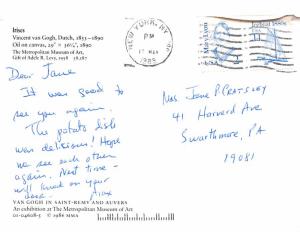 Irises
Vincent van Gogh, Dutch, 1853–1890
Oil on canvas, 29" × 36¼", 1890
The Metropolitan Museum of Art
Gift of Adele R. Levy, 1958
NEW YORK, NY
PM
1989
Mary Lyon
USA
Dear Jane
It was good to
see you again.
The potato dish
was delicious! Hope
we see each other
again. Next time -
will knock on your
door.
Mrs. Jane P.
41 Harvard Ave
Swarthmore, PA
19081
VAN GOGH IN SAINT-RÉMY AND AUVERS
An exhibition at The Metropolitan Museum of Art
© 1986 MMA